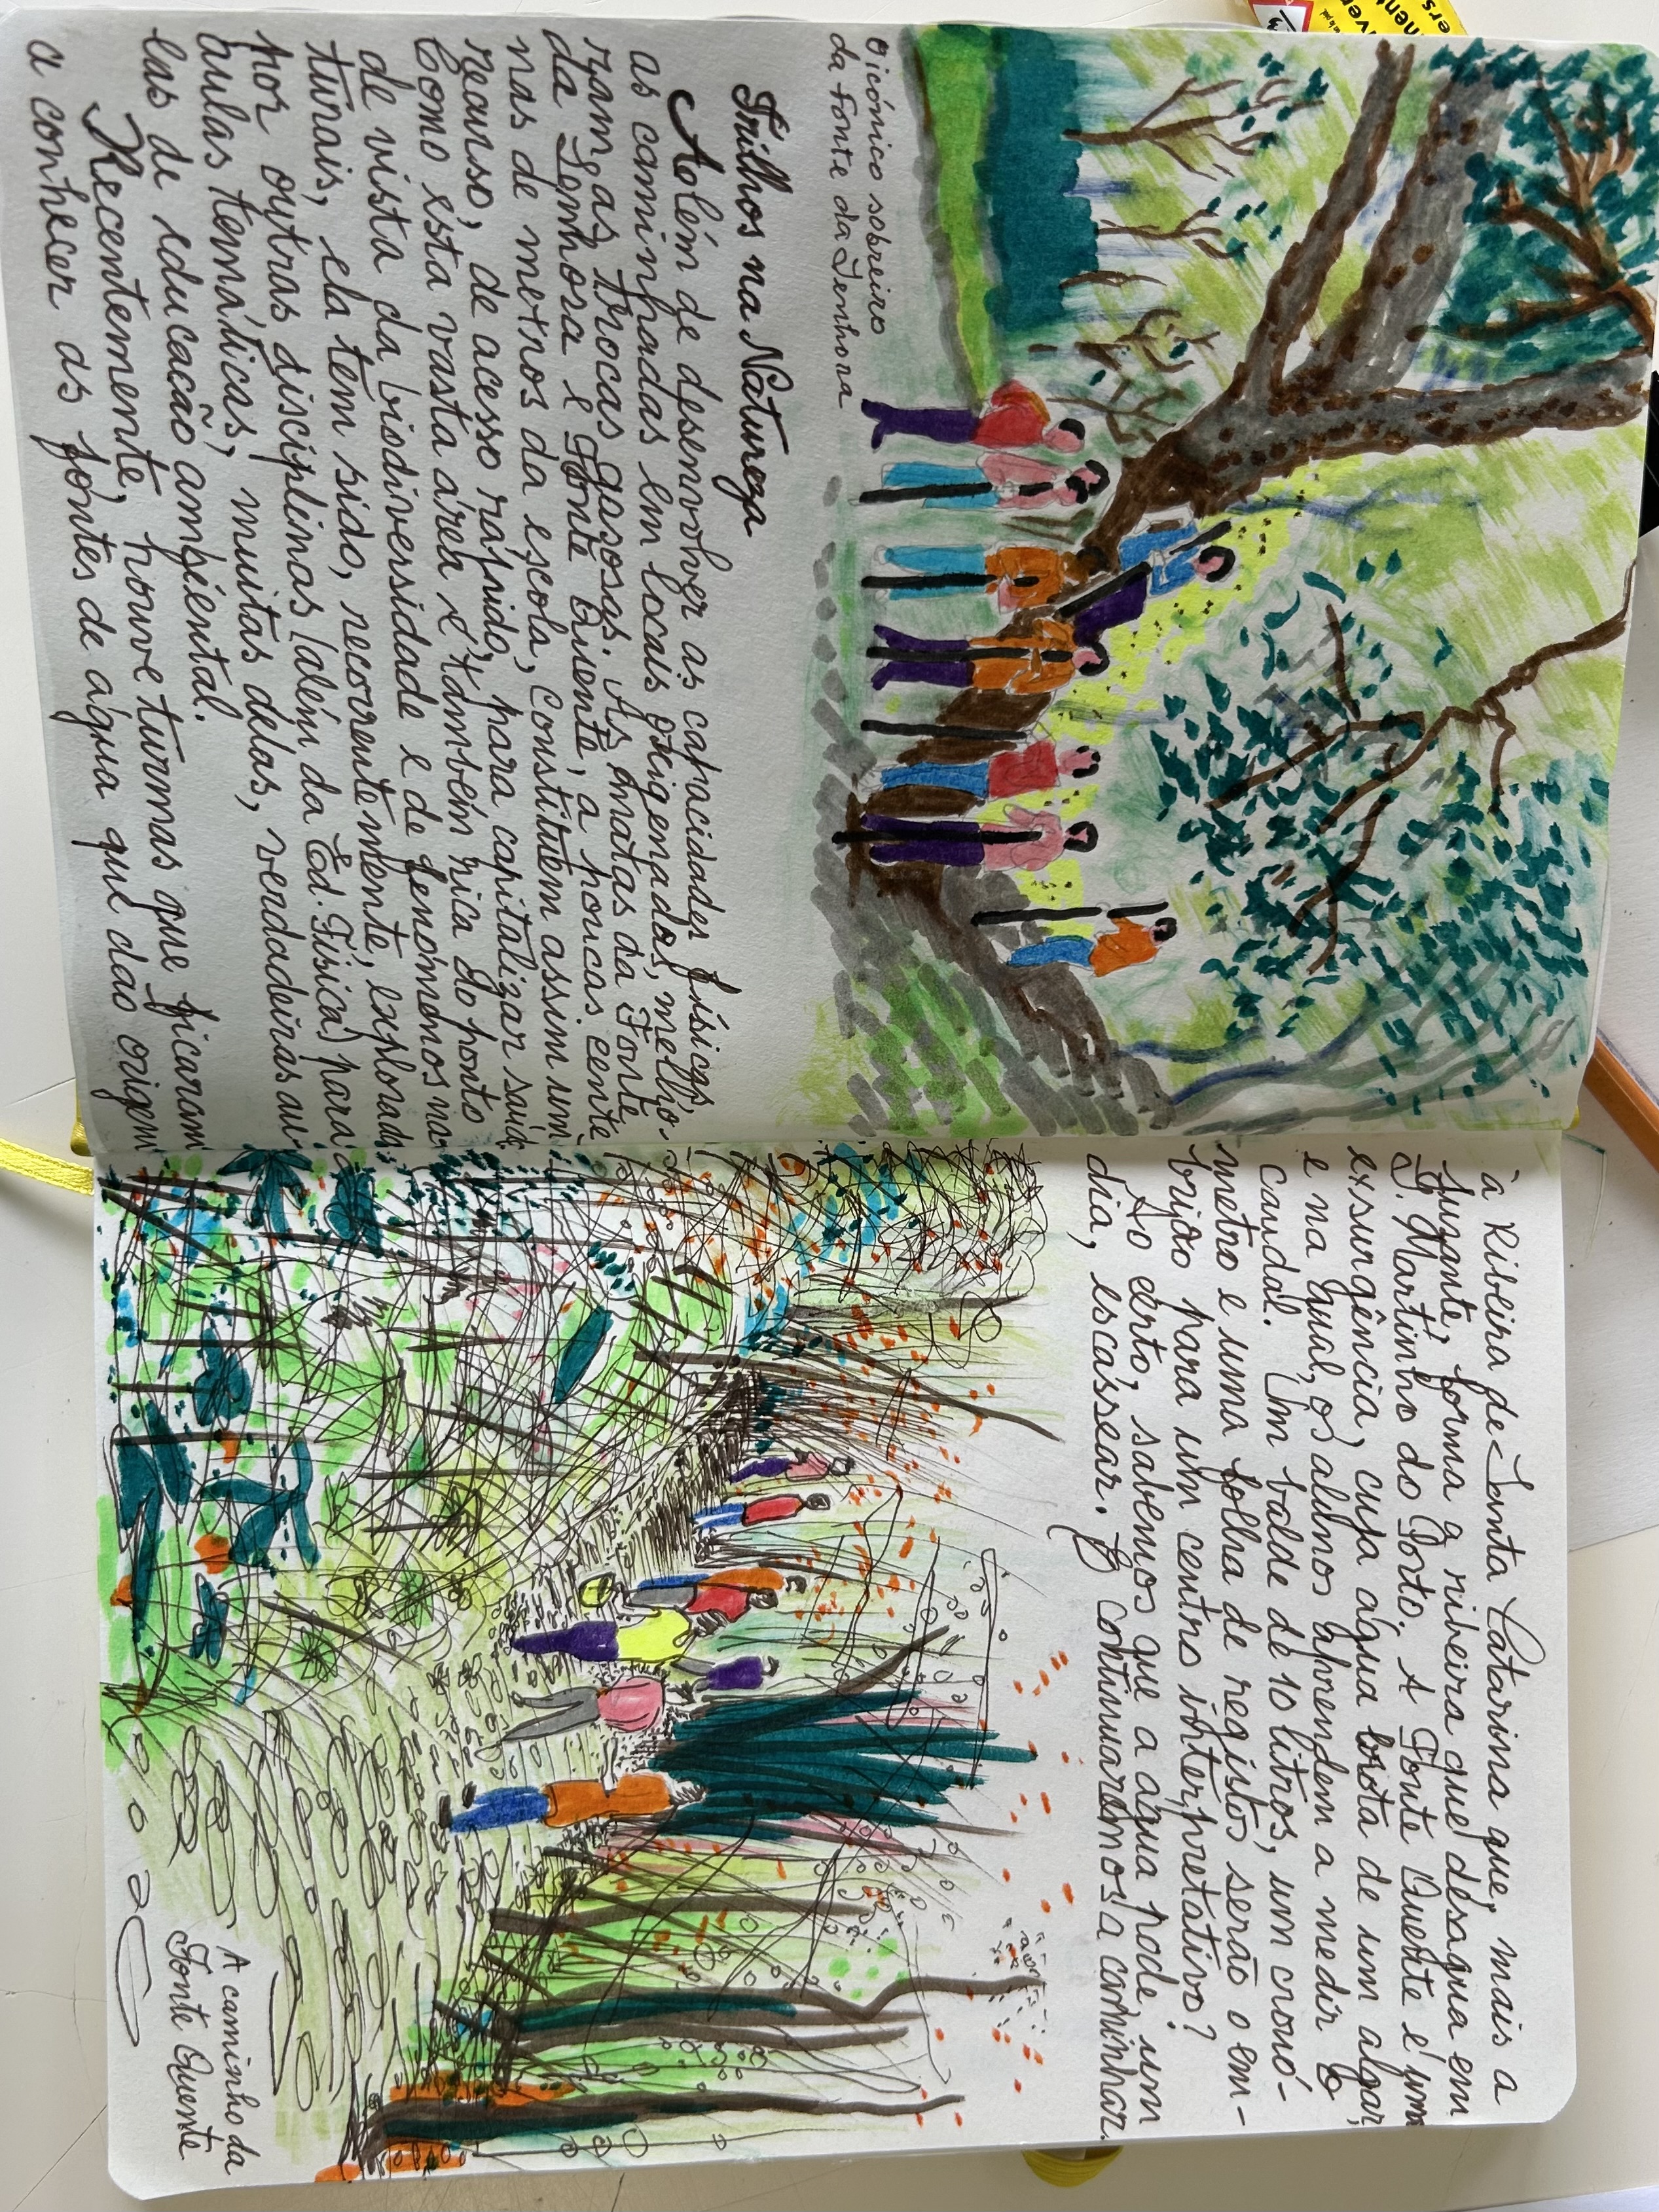 O icónico sobreiro
da Fonte da Senhora
Trilhos na Natureza
Além de desenvolver as capacidades físicas,
as caminhadas em locais oxigenados, melho-
ram as trocas gasosas. As matas da Fonte
da Senhora e Fonte Quente, a poucas cente
nas de metros da escola, constituem assim um
recurso, de acesso rápido, para capitalizar saúde
Como esta vasta área é também rica do ponto
de vista da biodiversidade e de fenómenos na-
turais, ela tem sido, recorrentemente, explorada
por outras disciplinas (além da Ed. Física) para
aulas temáticas, muitas delas, verdadeiras au-
las de educação ambiental.
Recentemente, houve turmas que ficaram
a conhecer as fontes de água que dão origem
à Ribeira de Santa Catarina que, mais a
jusante, forma a ribeira que desagua em
S. Martinho do Porto. A Fonte Quente é uma
exsurgência, cuja água brota de um algar,
e na qual, os alunos aprendem a medir o
caudal. Um balde de 10 litros, um cronó-
metro e uma folha de registos serão o em-
brião para um centro interpretativo?
Ao certo, sabemos que a água pode, um
dia, escassear. E continuaremos a caminhar.
A caminho da
Fonte Quente